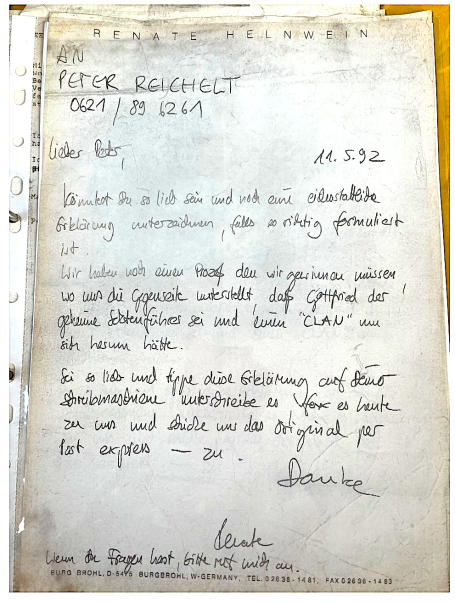 RENATE HELNWEIN
AN
PETER REICHELT
0621 / 89 6261
Lieber Peter,
11.5.92
könntest Du so lieb sein und noch eine eidesstattliche
Erklärung unterzeichnen, falls so richtig formuliert
ist.
Wir haben noch einen Prozeß den wir gewinnen müssen
wo uns die Gegenseite unterstellt, daß Gottfried der
geheime Sektenführer sei und einen "CLAN" um
sich herum hätte.
Sei so lieb und tippe diese Erklärung auf Deine
Schreibmaschine unterschreibe es, fax es heute
zu uns und schicke uns das Original per
Post express — zu.
Danke
Renate
Wenn Du Fragen hast, bitte ruf mich an.
BURG BROHL, D-5475 BURGBROHL, W-GERMANY, TEL. 02636-1481, FAX 02636-1483